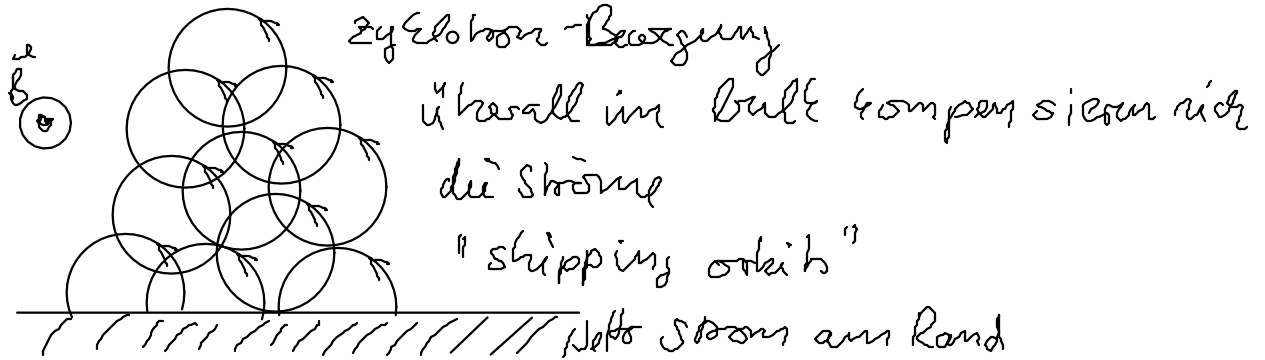 Zyklotron-Bewegung
B
überall im bulk kompensieren sich
die Ströme
"skipping orbits"
Netto Strom am Rand